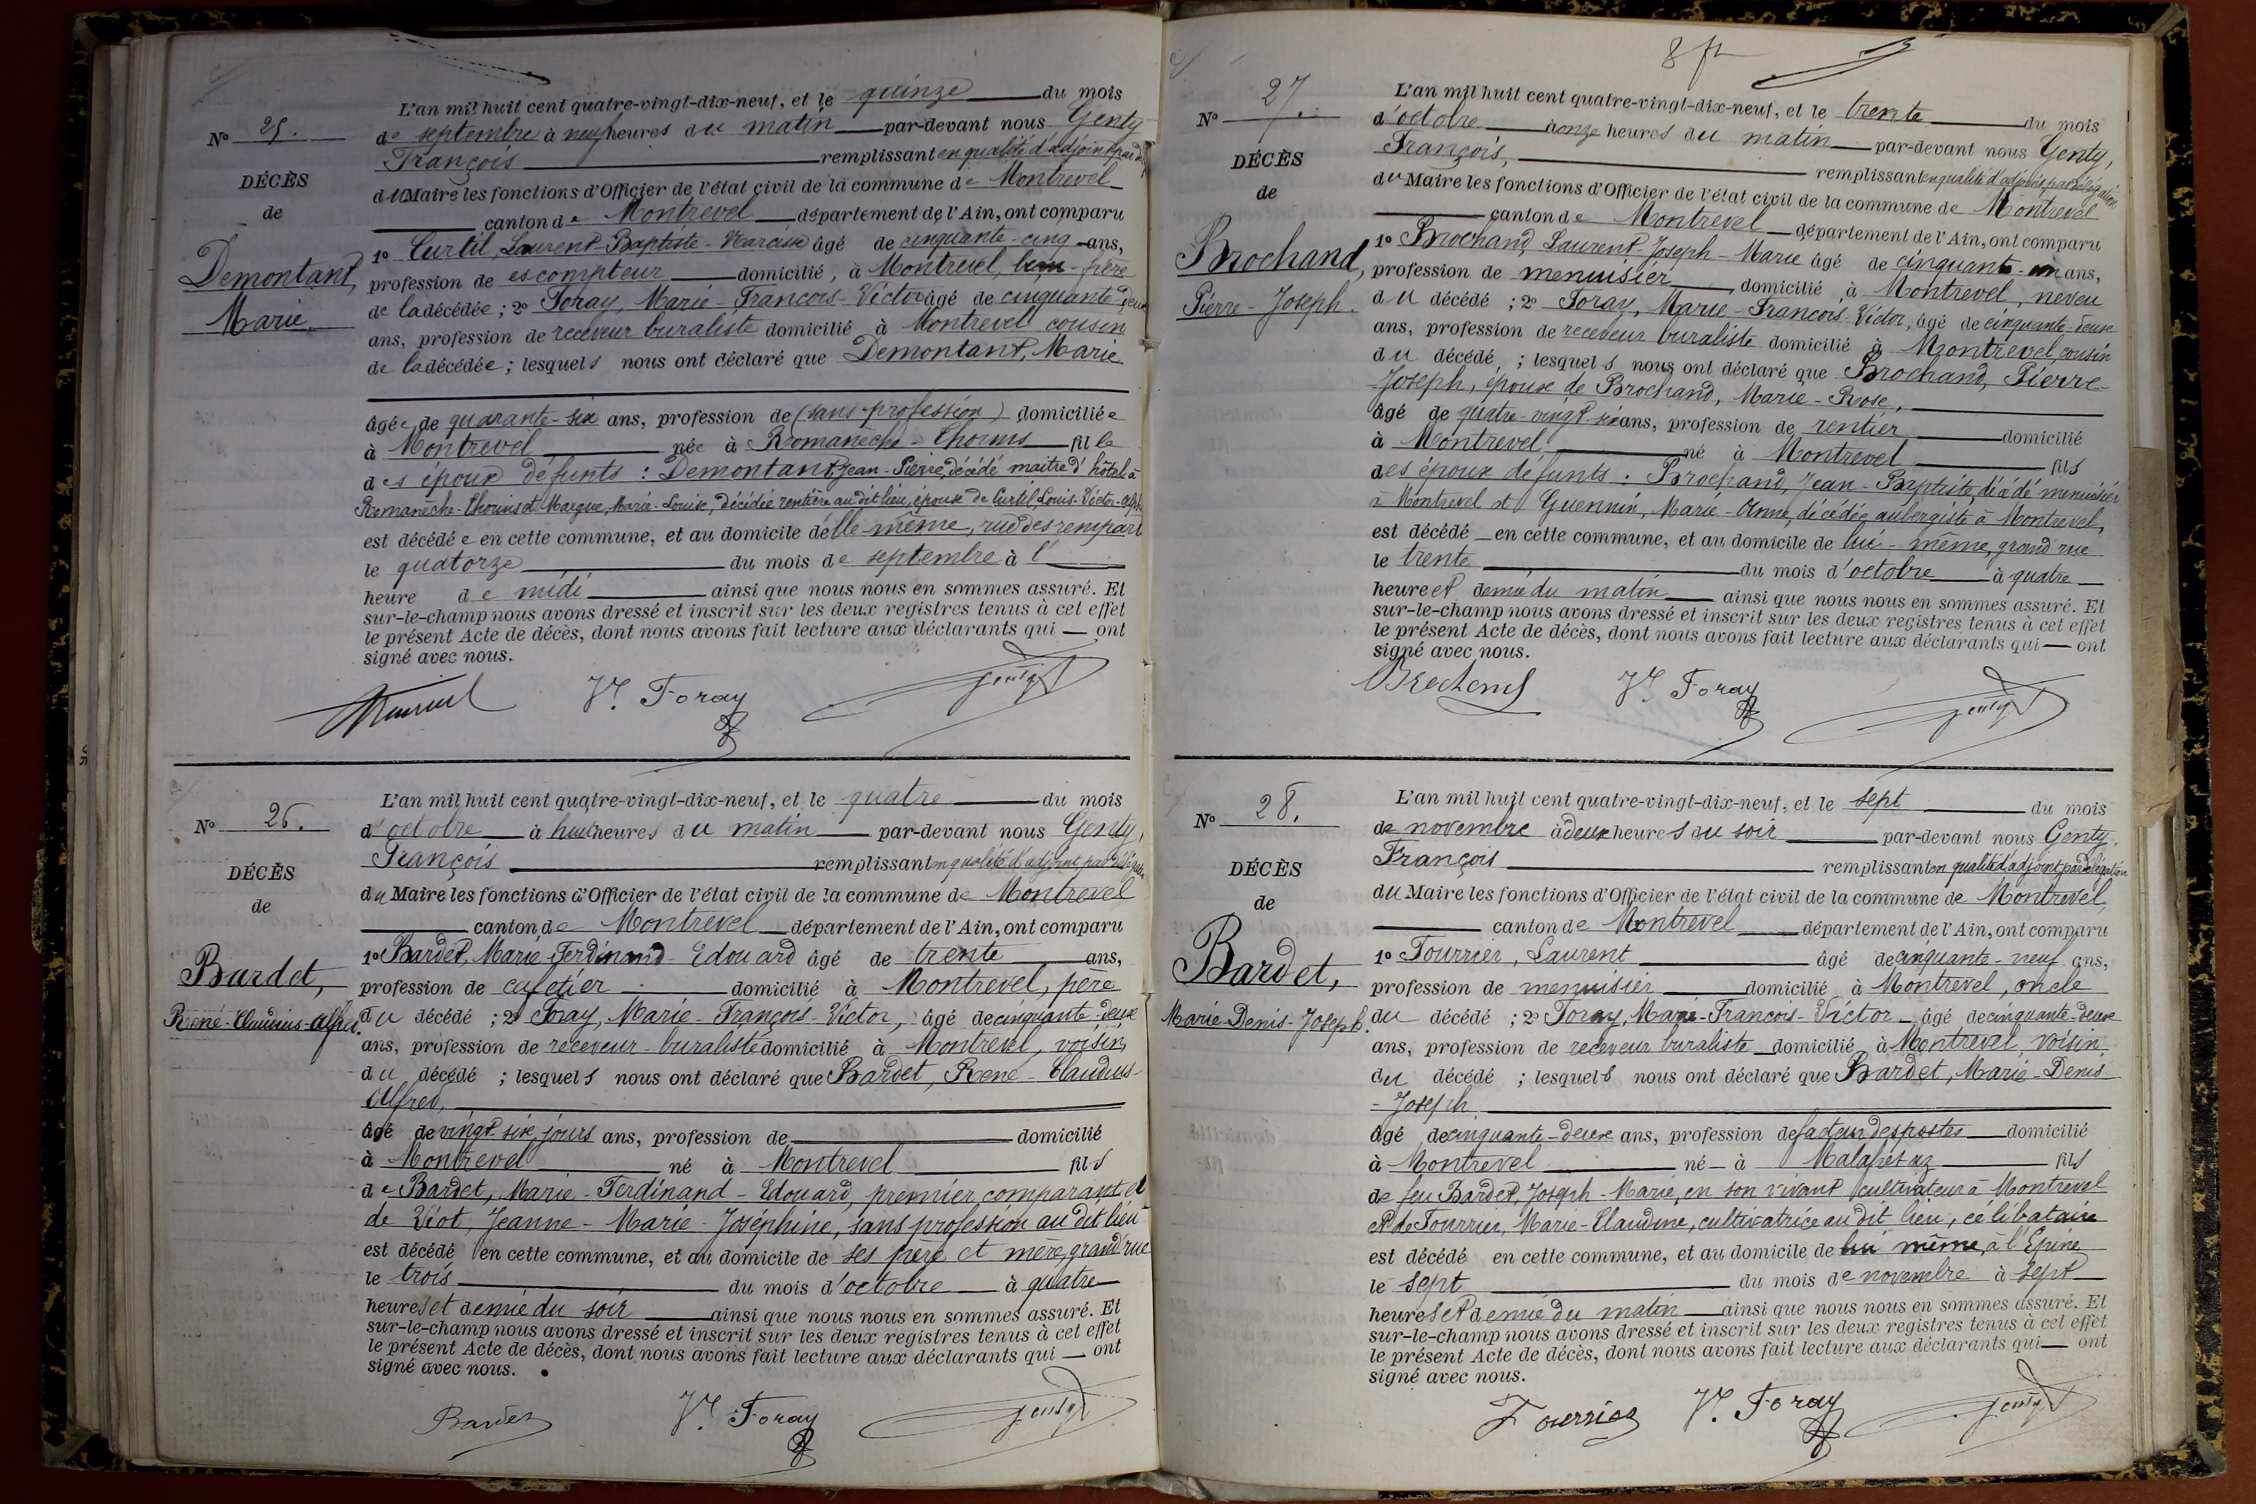 N° 25.
DÉCÈS
de
Demontant,
Marie
L'an mil huit cent quatre-vingt-dix-neuf, et le quinze du mois
de septembre à neuf heures du matin par-devant nous Genty
François remplissant en qualité d'adjoint
du Maire les fonctions d'Officier de l'état civil de la commune de Montrevel
canton de Montrevel département de l'Ain, ont comparu
1° Curtil, Laurent-Baptiste-Narcisse âgé de cinquante-cinq ans,
profession de escompteur domicilié, à Montrevel, beau-frère
de la décédée; 2° Foray, Marie-François-Victor âgé de cinquante-deux
ans, profession de receveur buraliste domicilié à Montrevel cousin
de la décédée; lesquels nous ont déclaré que Demontant, Marie
âgée de quarante-six ans, profession de (sans profession) domiciliée
à Montrevel née à Romanèche-Thorins fille
des époux défunts : Demontant, Jean-Pierre, décédé maitre d'hôtel à
Romanèche-Thorins et Margue, Marie-Louise, décédée rentière au dit lieu, épouse de Curtil, Louis-Victor-
est décédée en cette commune, et au domicile d'elle-même, rue des rempart
le quatorze du mois de septembre à l'
heure de midi ainsi que nous nous en sommes assuré. Et
sur-le-champ nous avons dressé et inscrit sur les deux registres tenus à cet effet
le présent Acte de décès, dont nous avons fait lecture aux déclarants qui — ont
signé avec nous.
Vr. Foray Genty
N° 26.
DÉCÈS
de
Bardet,
René-Claudius-Alfred.
L'an mil huit cent quatre-vingt-dix-neuf, et le quatre du mois
d'octobre à huit heures du matin par-devant nous Genty,
François remplissant en qualité d'adjoint par délégation
du Maire les fonctions d'Officier de l'état civil de la commune de Montrevel
canton de Montrevel département de l'Ain, ont comparu
1° Bardet, Marie-Ferdinand-Edouard âgé de trente ans,
profession de cafetier domicilié à Montrevel, père
du décédé ; 2° Foray, Marie-François-Victor, âgé de cinquante-deux
ans, profession de receveur-buraliste domicilié à Montrevel, voisin
du décédé ; lesquels nous ont déclaré que Bardet, René-Claudius-
Alfred,
âgé de vingt-six jours ans, profession de domicilié
à Montrevel né à Montrevel fils
de Bardet, Marie-Ferdinand-Edouard, premier comparant et
de Véot, Jeanne-Marie-Joséphine, sans profession au dit lieu
est décédé en cette commune, et au domicile de ses père et mère, grand'rue
le trois du mois d'octobre à quatre
heures et demie du soir ainsi que nous nous en sommes assuré. Et
sur-le-champ nous avons dressé et inscrit sur les deux registres tenus à cet effet
le présent Acte de décès, dont nous avons fait lecture aux déclarants qui — ont
signé avec nous.
Bardet Vr. Foray Genty
N° 27.
DÉCÈS
de
Brochand,
Pierre-Joseph.
L'an mil huit cent quatre-vingt-dix-neuf, et le trente du mois
d'octobre à onze heures du matin par-devant nous Genty,
François, remplissant en qualité d'adjoint par délégation
du Maire les fonctions d'Officier de l'état civil de la commune de Montrevel
canton de Montrevel département de l'Ain, ont comparu
1° Brochand, Laurent-Joseph-Marie âgé de cinquante-un ans,
profession de menuisier domicilié à Montrevel, neveu
du décédé ; 2° Foray, Marie-François-Victor, âgé de cinquante-deux
ans, profession de receveur buraliste domicilié à Montrevel, cousin
du décédé, ; lesquels nous ont déclaré que Brochand, Pierre-
Joseph, époux de Brochand, Marie-Rose,
âgé de quatre-vingt-six ans, profession de rentier domicilié
à Montrevel né à Montrevel fils
des époux défunts : Brochand, Jean-Baptiste, décédé menuisier
à Montrevel et Guennin, Marie-Anne, décédée aubergiste à Montrevel,
est décédé en cette commune, et au domicile de lui-même, grand'rue
le trente du mois d'octobre à quatre
heure et demie du matin ainsi que nous nous en sommes assuré. Et
sur-le-champ nous avons dressé et inscrit sur les deux registres tenus à cet effet
le présent Acte de décès, dont nous avons fait lecture aux déclarants qui — ont
signé avec nous.
Brochand Vr. Foray Genty
N° 28.
DÉCÈS
de
Bardet,
Marie-Denis-Joseph.
L'an mil huit cent quatre-vingt-dix-neuf, et le sept du mois
de novembre à deux heures du soir par-devant nous Genty,
François remplissant en qualité d'adjoint par délégation
du Maire les fonctions d'Officier de l'état civil de la commune de Montrevel,
canton de Montrevel département de l'Ain, ont comparu
1° Fourrier, Laurent âgé de cinquante-neuf ans,
profession de menuisier domicilié à Montrevel, oncle
du décédé ; 2° Foray, Marie-François-Victor âgé de cinquante-deux
ans, profession de receveur buraliste domicilié à Montrevel, voisin
du décédé ; lesquels nous ont déclaré que Bardet, Marie-Denis
-Joseph
âgé de cinquante-deux ans, profession de facteur des postes domicilié
à Montrevel né à Malafretaz fils
de feu Bardet, Joseph-Marie, en son vivant cultivateur à Montrevel
et de Fourrier, Marie-Claudine, cultivatrice au dit lieu, célibataire
est décédé en cette commune, et au domicile de lui même, à l'Epine
le sept du mois de novembre à sept
heures et demie du matin ainsi que nous nous en sommes assuré. Et
sur-le-champ nous avons dressé et inscrit sur les deux registres tenus à cet effet
le présent Acte de décès, dont nous avons fait lecture aux déclarants qui — ont
signé avec nous.
Fourrier Vr. Foray Genty